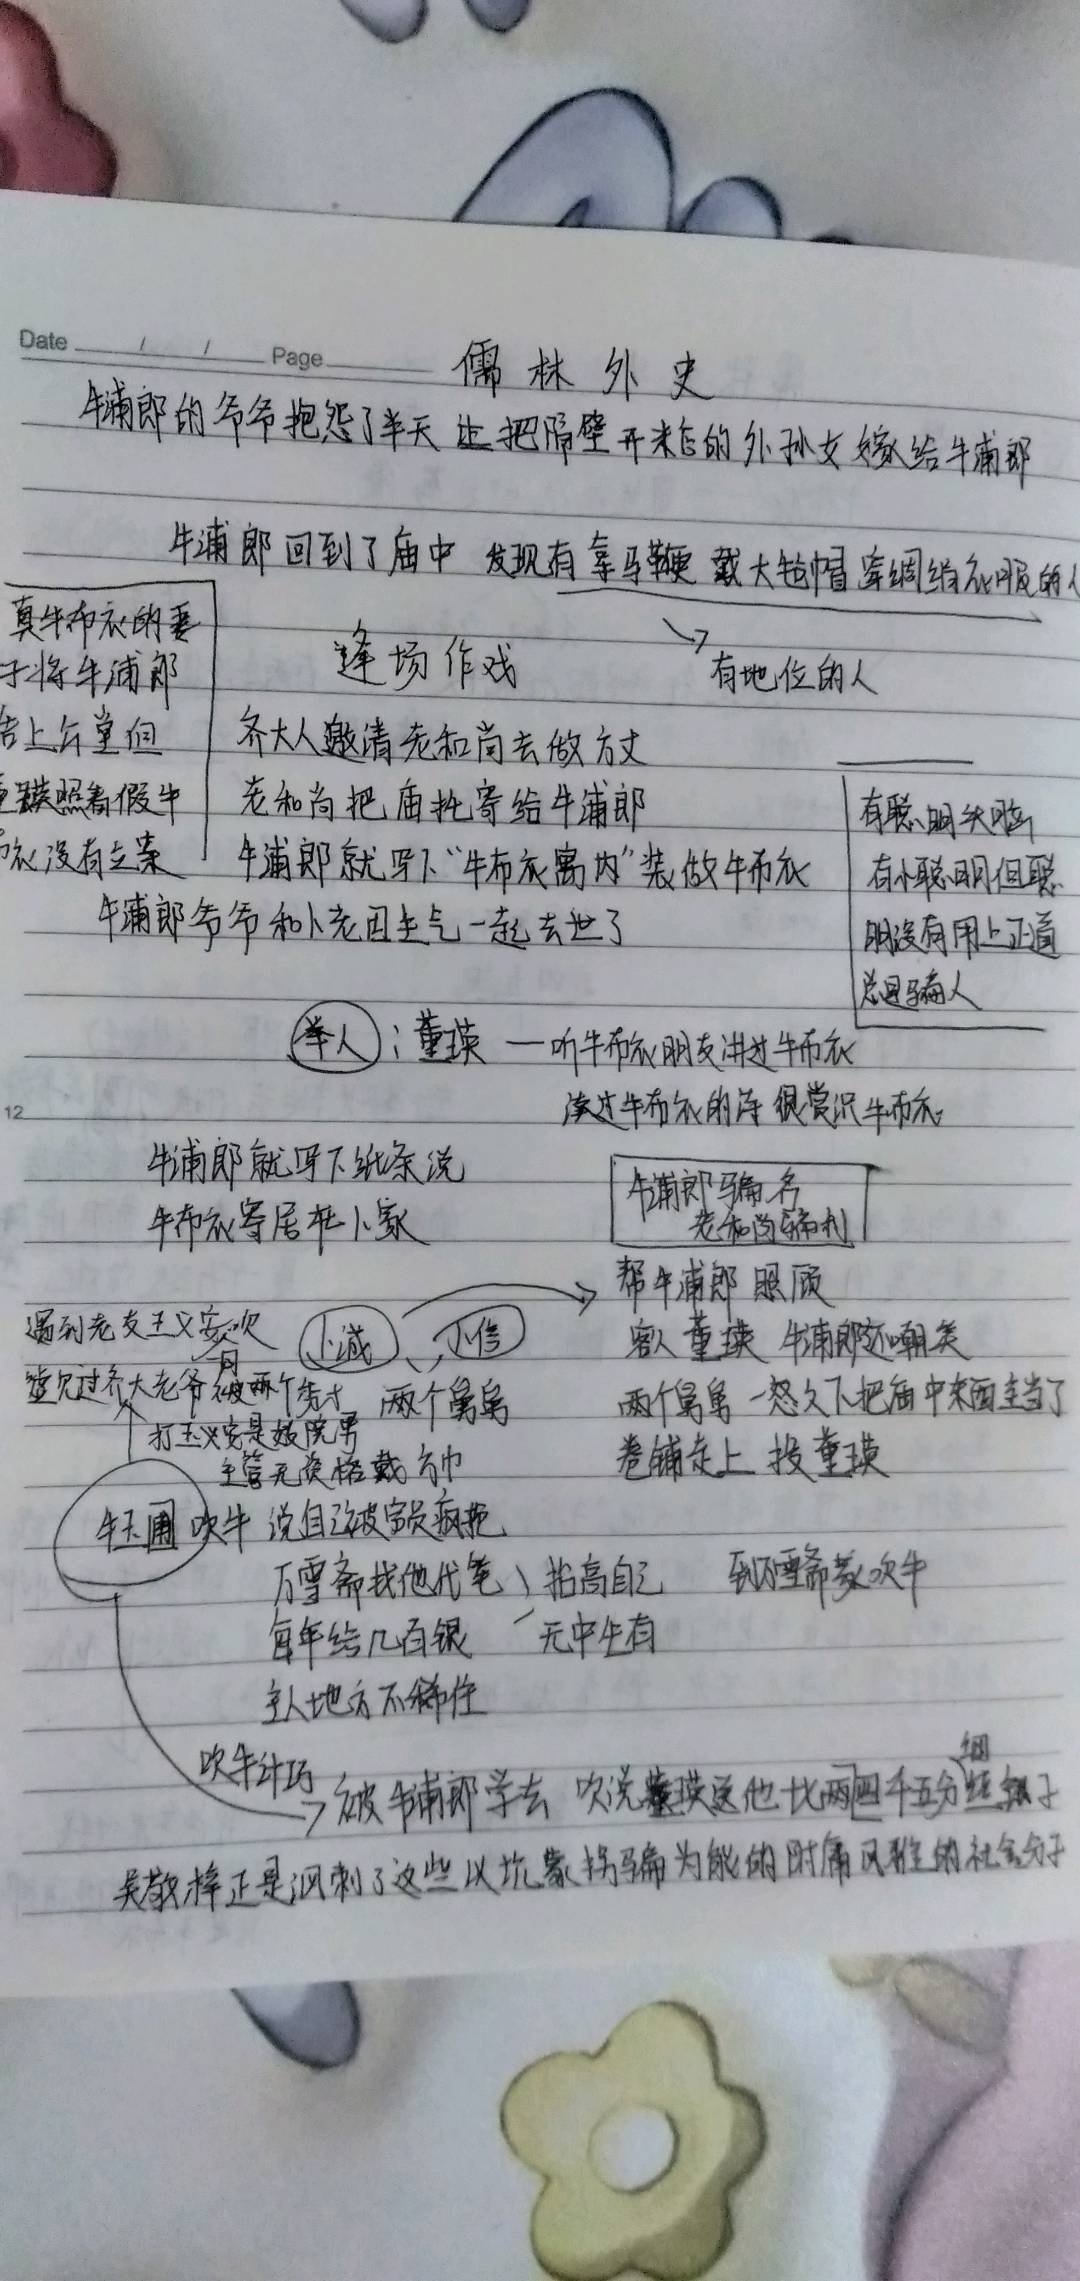 Date / / Page
儒林外史
牛浦郎的爷爷抱怨了半天 让把隔壁开米店的外孙女嫁给牛浦郎
牛浦郎回到了庙中 发现有拿马鞭 戴大毡帽 穿绸缎衣服的人
有地位的人
真牛布衣的妻
子将牛浦郎
告上公堂但
董瑛照着假牛
布衣没有立案
逢场作戏
齐大人邀请老和尚去做方丈
老和尚把庙托寄给牛浦郎
牛浦郎就写下“牛布衣寓内”装做牛布衣
牛浦郎爷爷和卜老因生气一起去世了
有聪明头脑
有小聪明但聪
明没有用上正道
总是骗人
举人：董瑛 — 听牛布衣朋友讲过牛布衣
读过牛布衣的诗 很赏识牛布衣
12
牛浦郎就写下纸条说
牛布衣寄居在卜家
牛浦郎骗名
老和尚骗利
卜诚、卜信
两个舅舅
帮牛浦郎照顾
客人董瑛 牛浦郎还嘲笑
两个舅舅 一怒之下把庙中东西全当了
卷铺走上 投董瑛
遇到老友王义安吹
过齐大老爷 被两个秀才
打王义安是妓院男
主管无资格戴方巾
牛玉圃 吹牛 说自己被官员疯抢
万雪斋找他代笔、抬高自己 到万雪斋家吹牛
每年给几百银 无中生有
主人地方不稀住
吹牛计巧
被牛浦郎学去 吹说董瑛送他 比两四千五分细丝银子
吴敬梓正是讽刺了这些以坑蒙拐骗为能的附庸风雅的社会分子